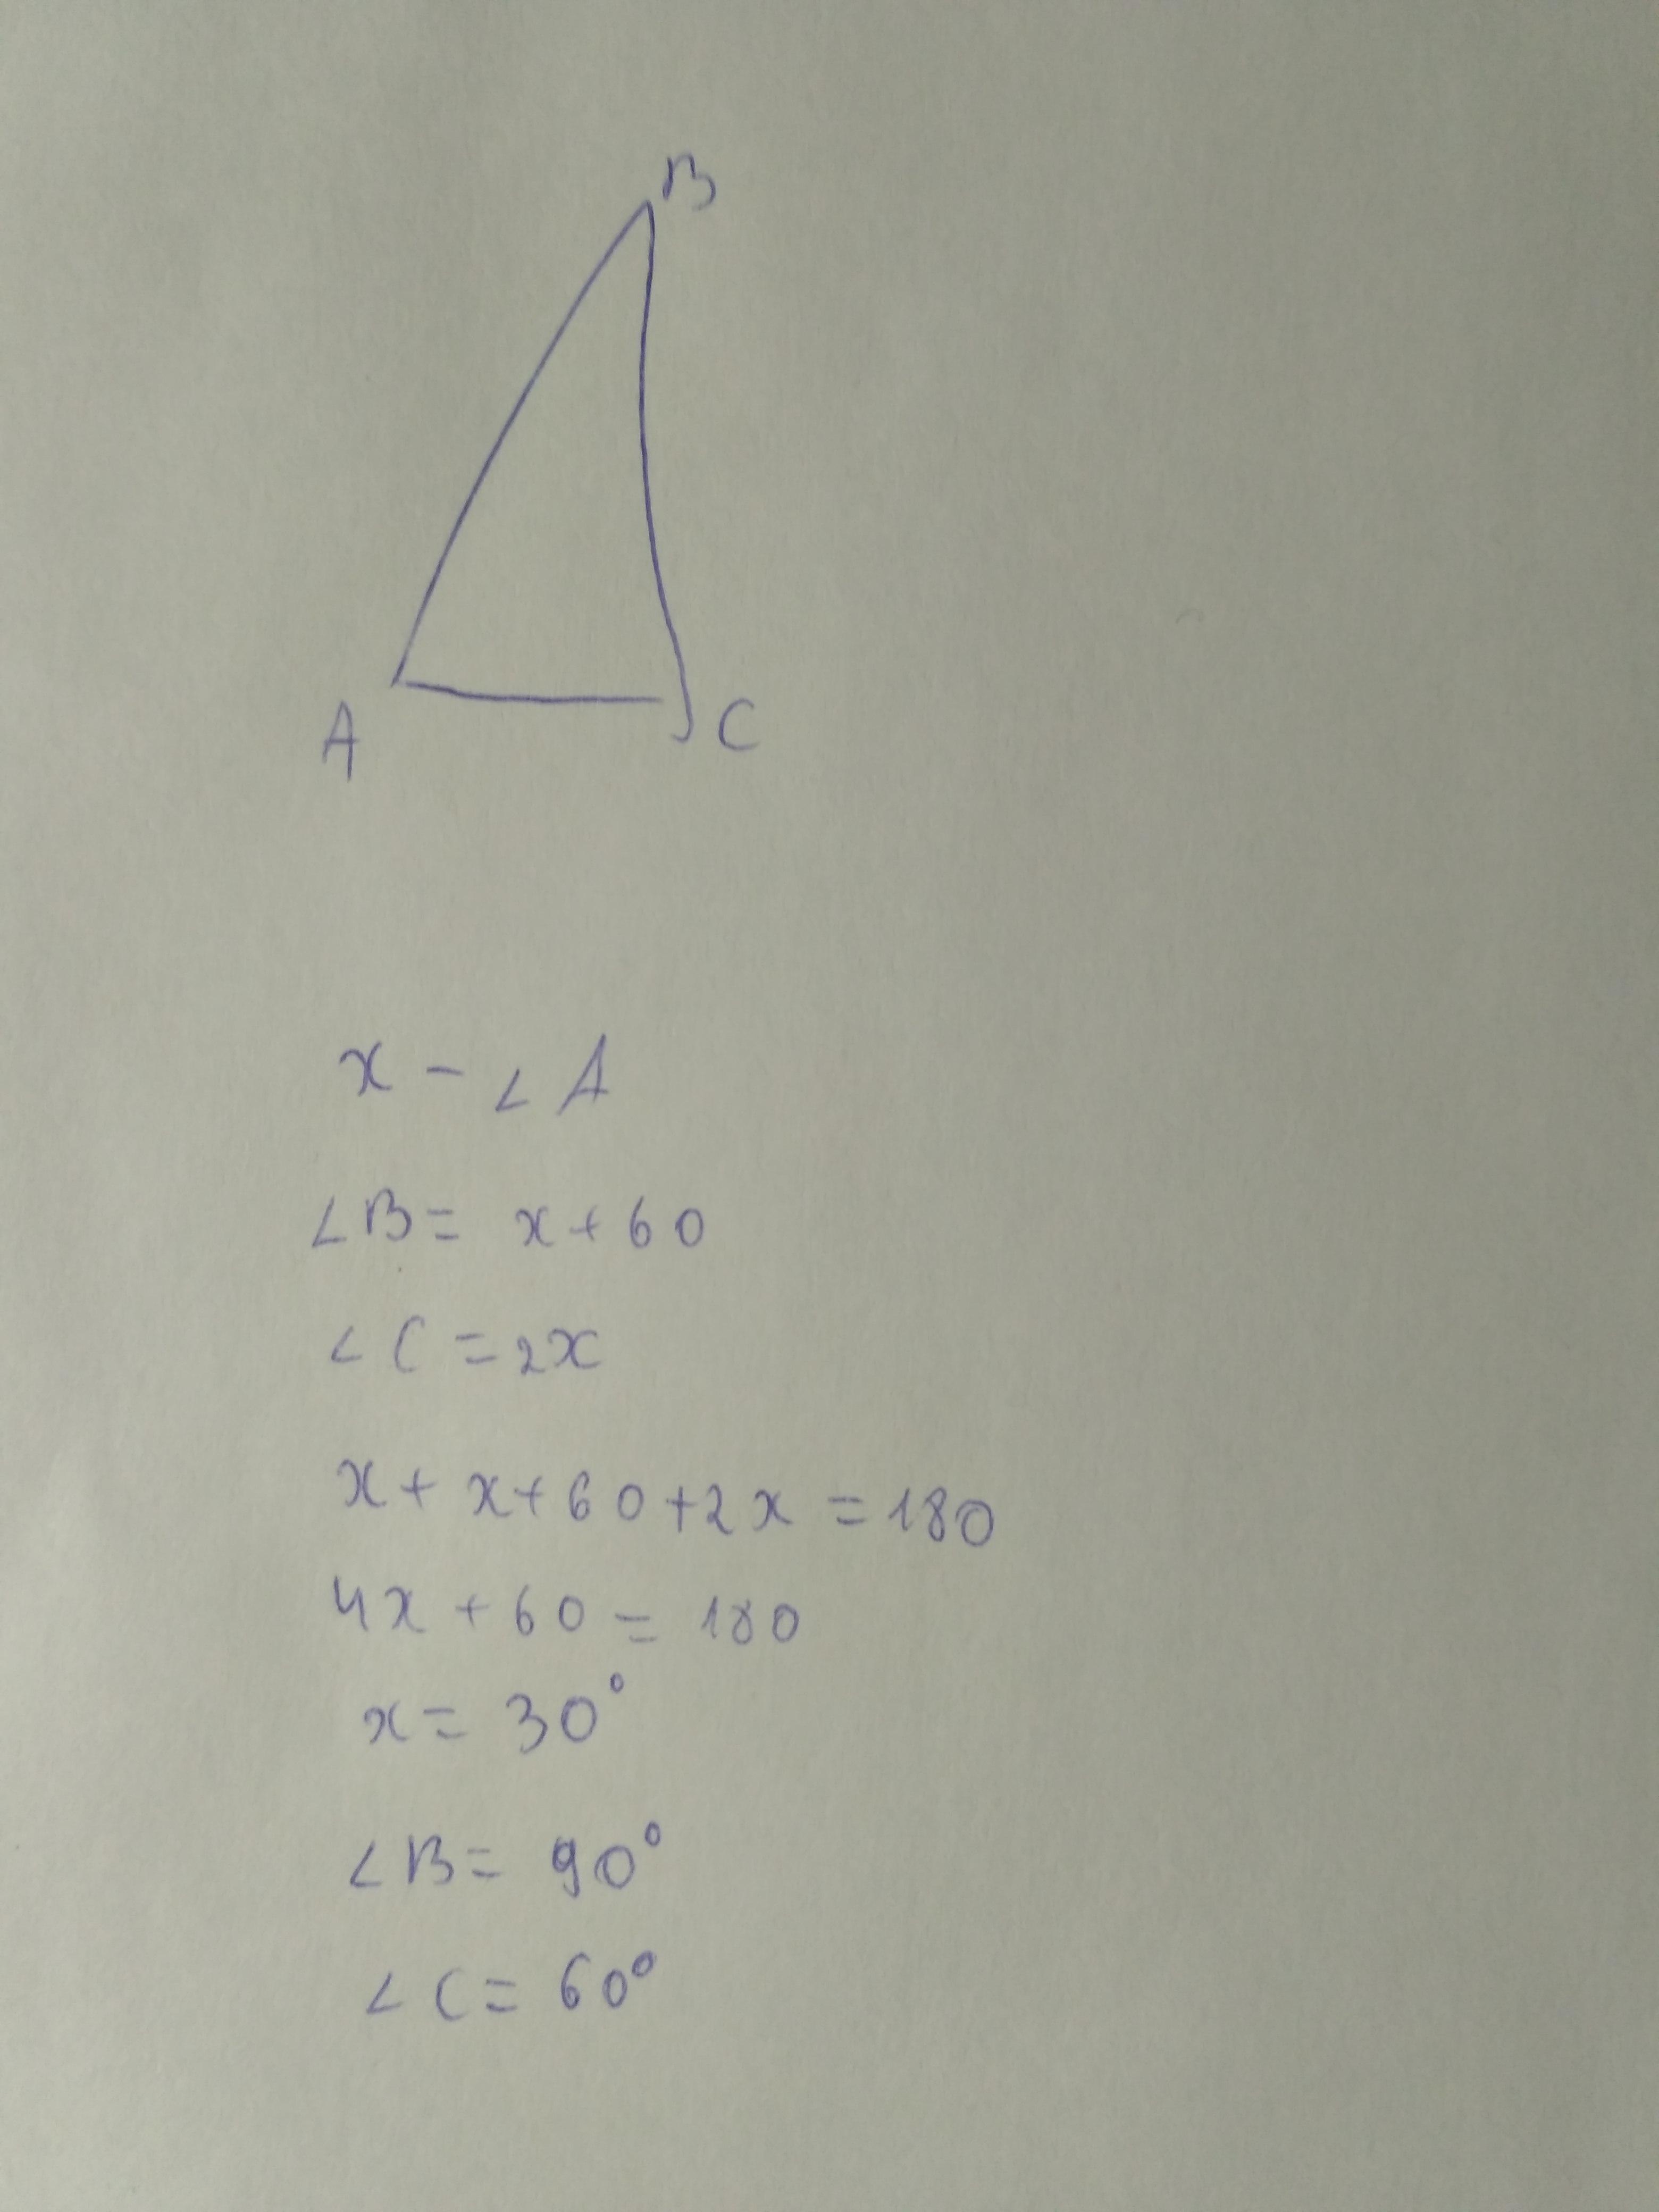 B
A
C
x - ∠A
∠B = x + 60
∠C = 2x
x + x + 60 + 2x = 180
4x + 60 = 180
x = 30°
∠B = 90°
∠C = 60°